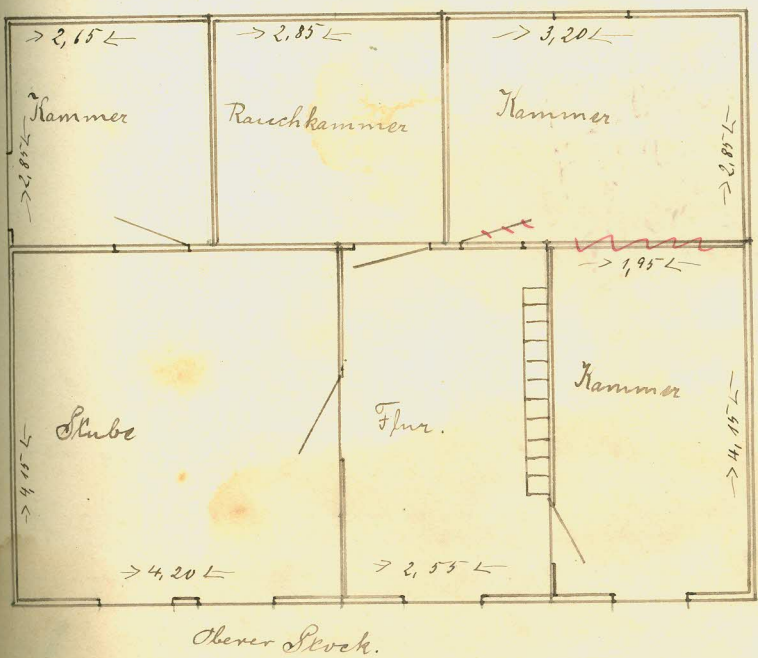 2,65
2,85
3,20
Kammer
Rauchkammer
Kammer
2,85
2,85
1,95
Kammer
Stube
Flur.
4,15
4,15
4,20
2,55
Oberer Stock.